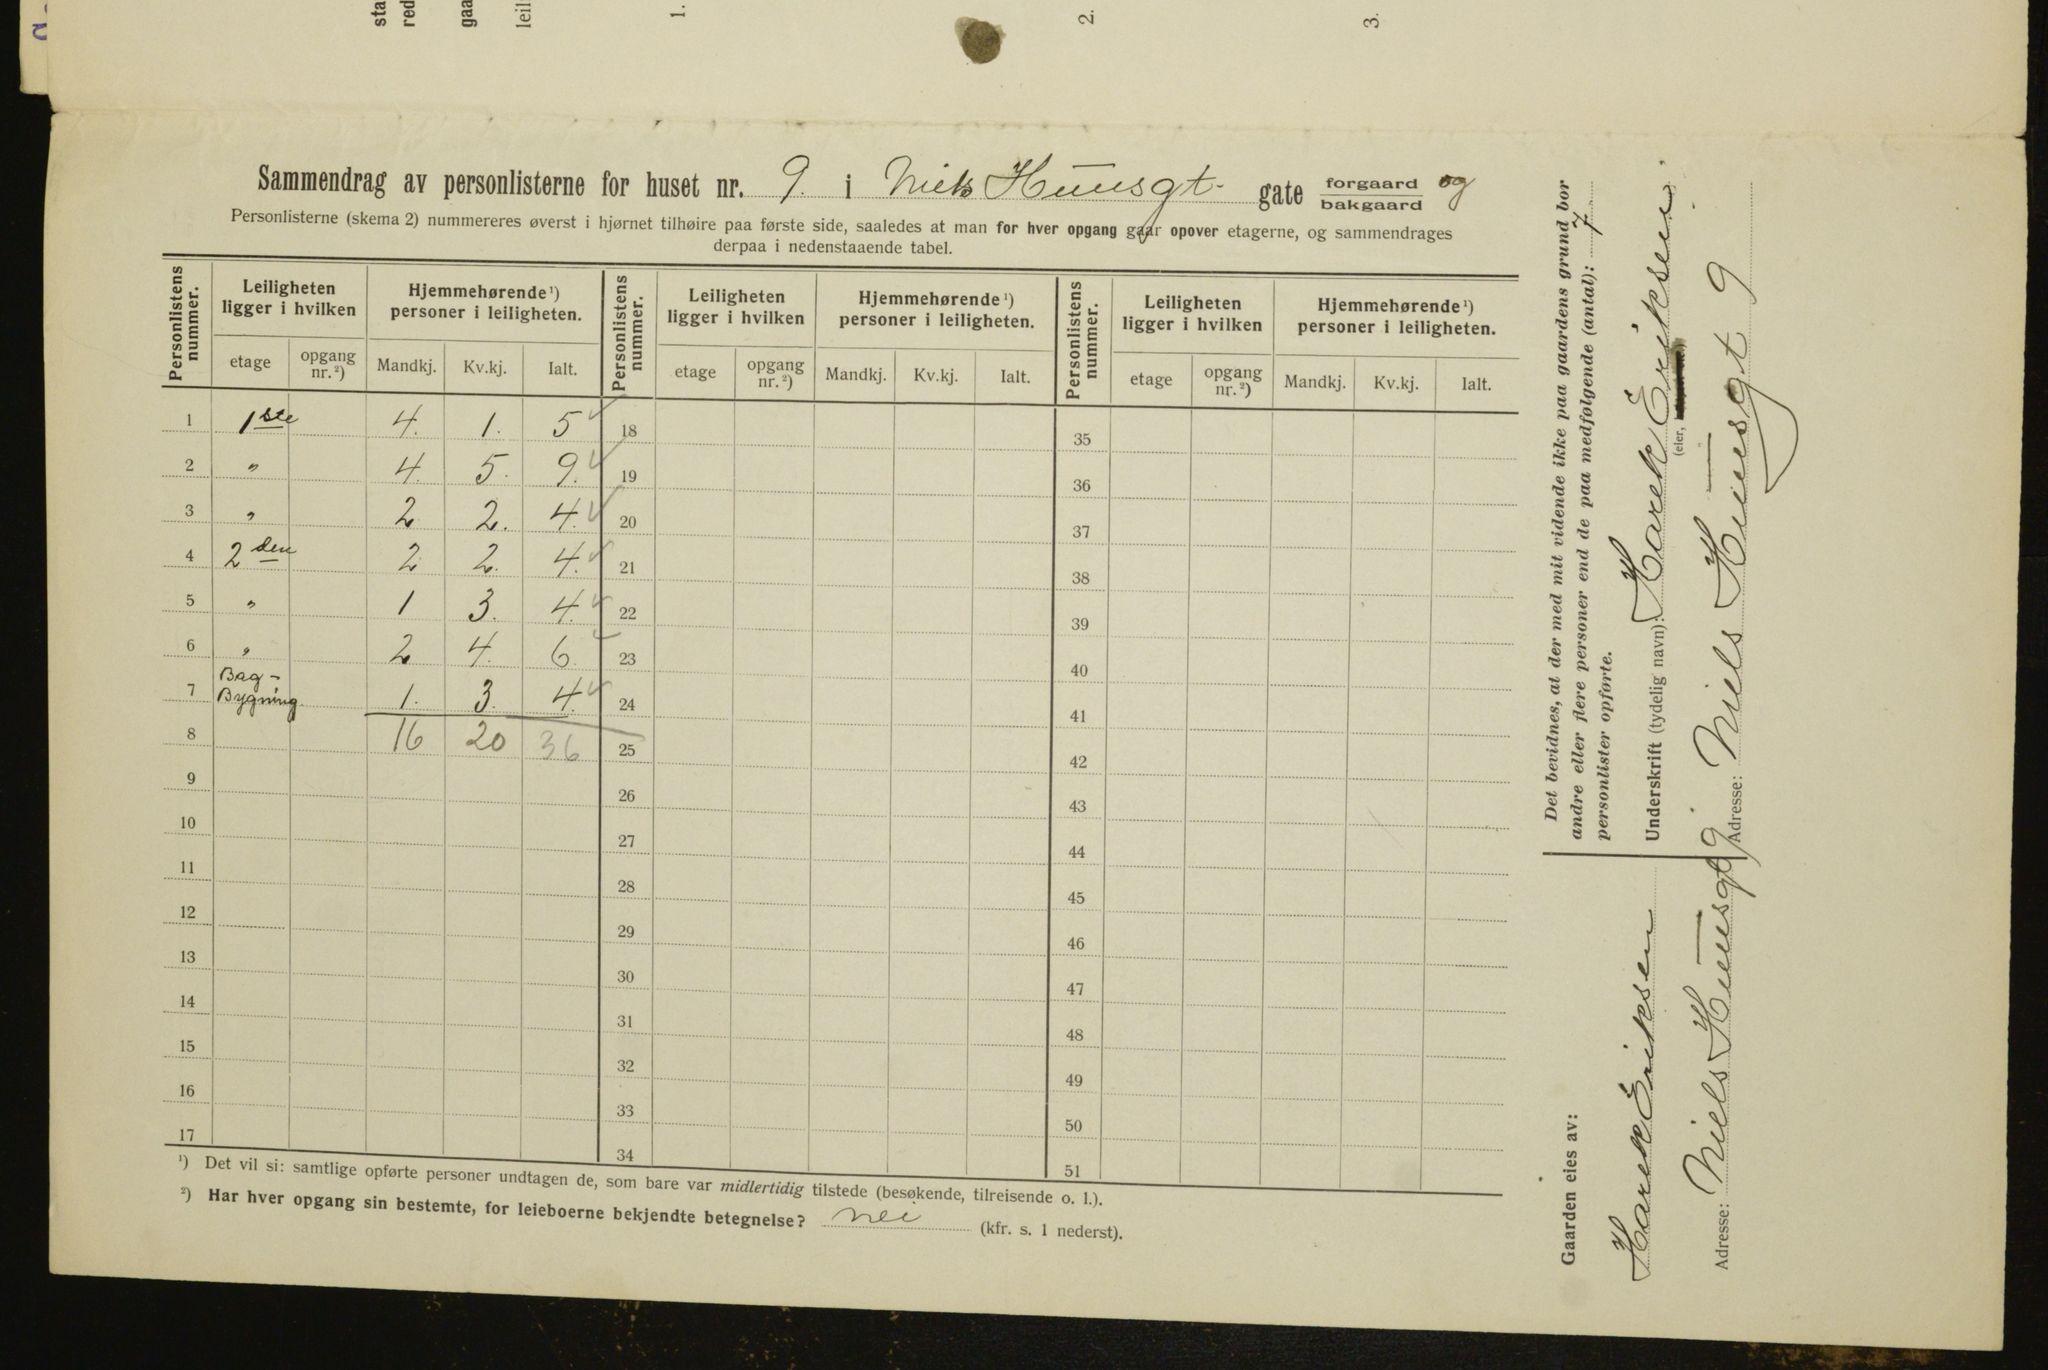 sta
red
gaa
leil
1.
2.
3.
Sammendrag av personlisterne for huset nr. 9. i Niels Huusgt. gate forgaard og bakgaard
Personlisterne (skema 2) nummereres øverst i hjørnet tilhøire paa første side, saaledes at man for hver opgang gaar opover etagerne, og sammendrages
derpaa i nedenstaaende tabel.
Personlistens nummer. | Leiligheten ligger i hvilken | Hjemmehørende ¹) personer i leiligheten. | Personlistens nummer. | Leiligheten ligger i hvilken | Hjemmehørende ¹) personer i leiligheten. | Personlistens nummer. | Leiligheten ligger i hvilken | Hjemmehørende ¹) personer i leiligheten.
etage | opgang nr. ²) | Mandkj. | Kv.kj. | Ialt. | etage | opgang nr. ²) | Mandkj. | Kv.kj. | Ialt. | etage | opgang nr. ²) | Mandkj. | Kv.kj. | Ialt.
1 1ste 4. 1. 5 18 35
2 " 4. 5. 9. 19 36
3 " 2 2. 4. 20 37
4 2den 2. 2. 4. 21 38
5 " 1 3. 4. 22 39
6 " 2 4. 6. 23 40
7 Bag-Bygning 1. 3. 4. 24 41
8 16 20 36 25 42
9 26 43
10 27 44
11 28 45
12 29 46
13 30 47
14 31 48
15 32 49
16 33 50
17 34 51
¹) Det vil si: samtlige opførte personer undtagen de, som bare var midlertidig tilstede (besøkende, tilreisende o. l.).
²) Har hver opgang sin bestemte, for leieboerne bekjendte betegnelse? nei (kfr. s. 1 nederst).
Det bevidnes, at der med mit vidende ikke paa gaardens grund bor
andre eller flere personer end de paa medfølgende (antal): 7.
personlister opførte.
Underskrift (tydelig navn): Harek Eriksen
(eier,
Adresse: Niels Huusgt 9
Gaarden eies av:
Harek Eriksen
Adresse: Niels Huusgt 9